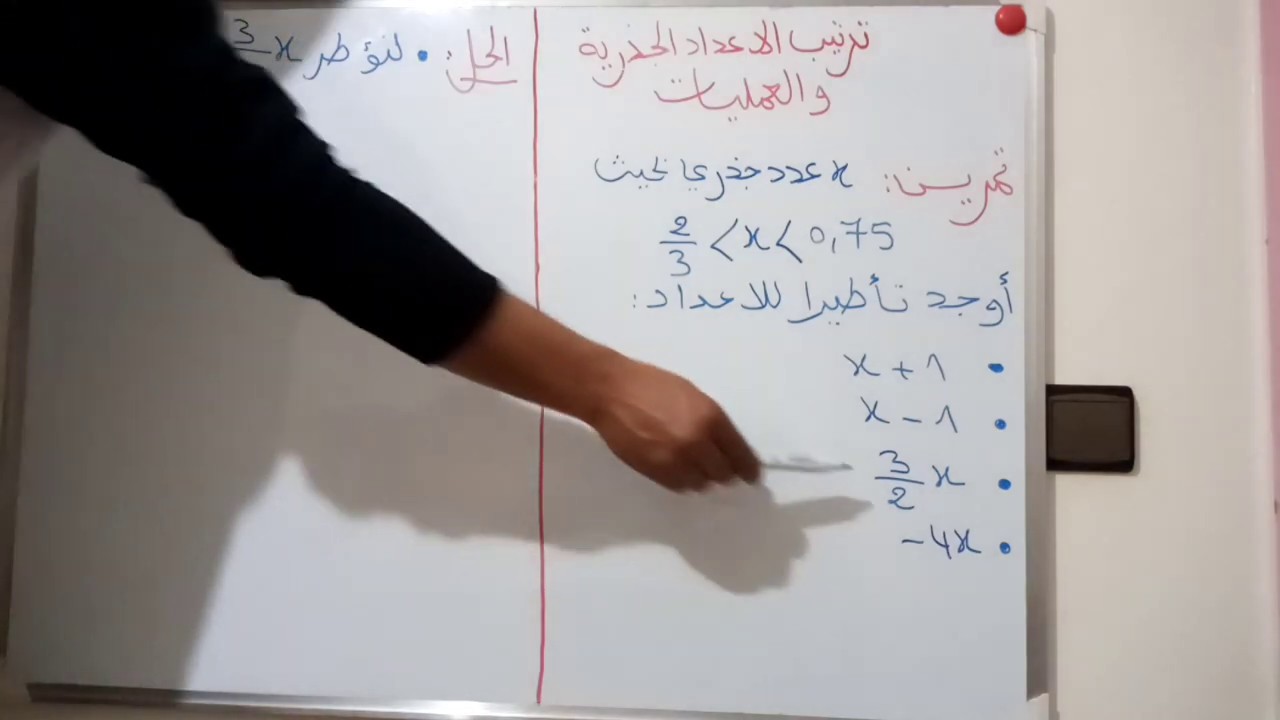 ترتيب الاعداد الجذرية
والعمليات
تمرين: x عدد جذري بحيث
2/3 < x < 0,75
أوجد تأطيرا للاعداد:
• x + 1
• x - 1
• 3/2 x
• -4x
الحل: • لنؤطر 3/ x